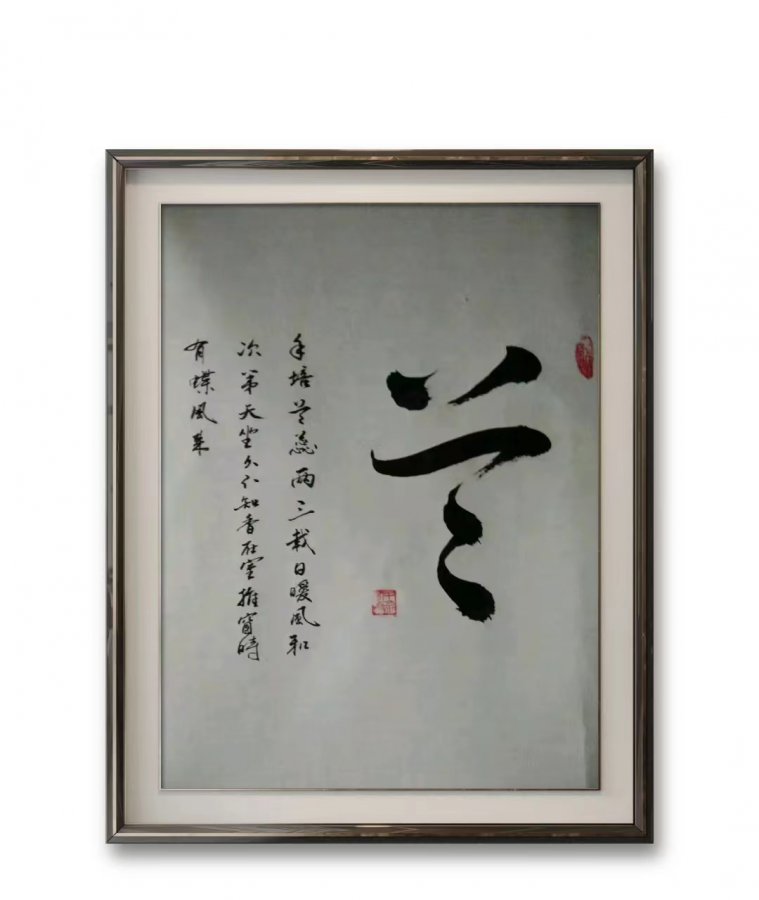 兰
手培兰蕊两三栽日暖風和
次第开坐久不知香在室推窗時
有蝶風来